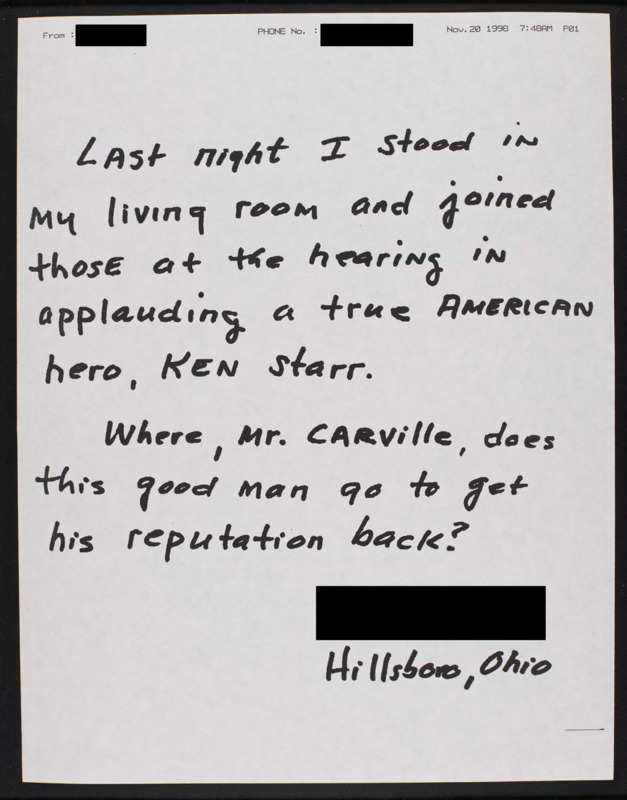 From : PHONE No. : Nov. 20 1998 7:48AM P01
LAST night I stood in
my living room and joined
those at the hearing in
applauding a true AMERICAN
hero, KEN Starr.
Where, Mr. CARVille, does
this good man go to get
his reputation back?
Hillsboro, Ohio